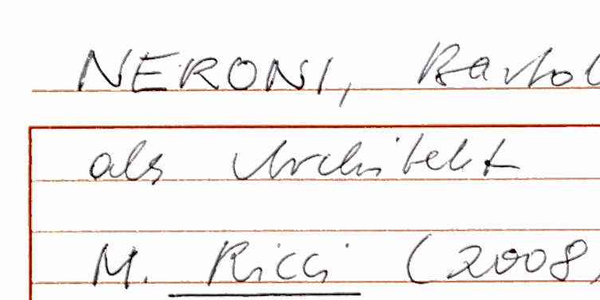 NERONI, Bartol
als Architekt
M. Ricci (2008,